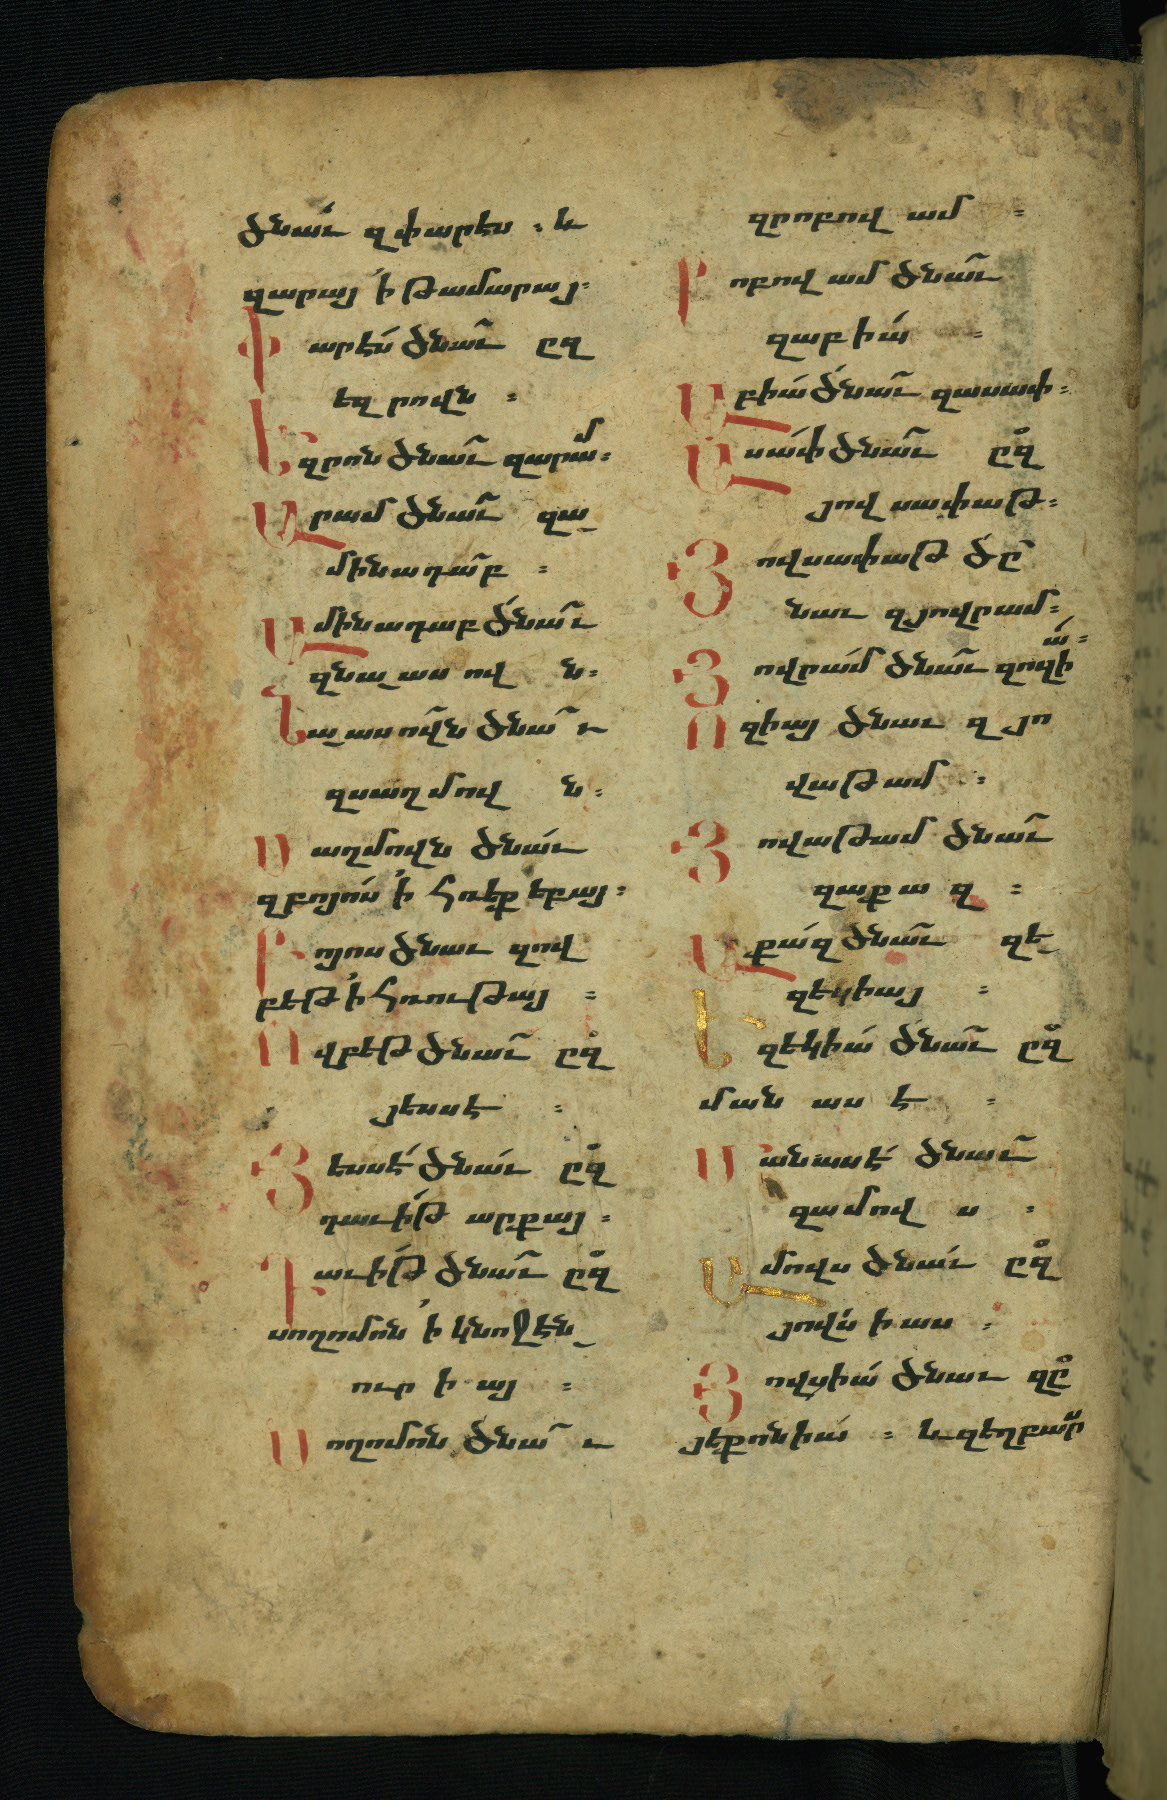 ծնաւ զփարէս ։ և
զարայ ի թամարայ։
Փարէս ծնաւ ըզ
եզրովն ։
Եզրոն ծնաւ զարամ։
Արամ ծնաւ զա
մինադաբ ։
Ամինադաբ ծնաւ
զնաասովն։
Նաասովն ծնաւ
զսաղմովն։
Սաղմովն ծնաւ
զբոյոս ի հռեքեբայ։
Բոյոս ծնաւ զով
բեթ ի հռութայ ։
Ովբեթ ծնաւ ըզ
յեսսէ ։
Յեսսէ ծնաւ ըզ
դաւիթ արքայ ։
Դաւիթ ծնաւ ըզ
սողոմոն ի կնոջէն
ուրիայ ։
Սողոմոն ծնաւ
զրոբովամ ։
Րոբովամ ծնաւ
զաբիա ։
Աբիա ծնաւ զասափ։
Ասափ ծնաւ ըզ
յովսափաթ։
Յովսափաթ ծը
նաւ զյովրամ։
Յովրամ ծնաւ զոզիա։
Ոզիայ ծնաւ զյո
վաթամ ։
Յովաթամ ծնաւ
զաքազ ։
Աքազ ծնաւ զե
զեկիայ ։
Եզեկիա ծնաւ ըզ
մանասէ ։
Մանասէ ծնաւ
զամովս ։
Ամովս ծնաւ ըզ
յովսիաս ։
Յովսիա ծնաւ զը
յեքոնիա ։ և զեղբարս